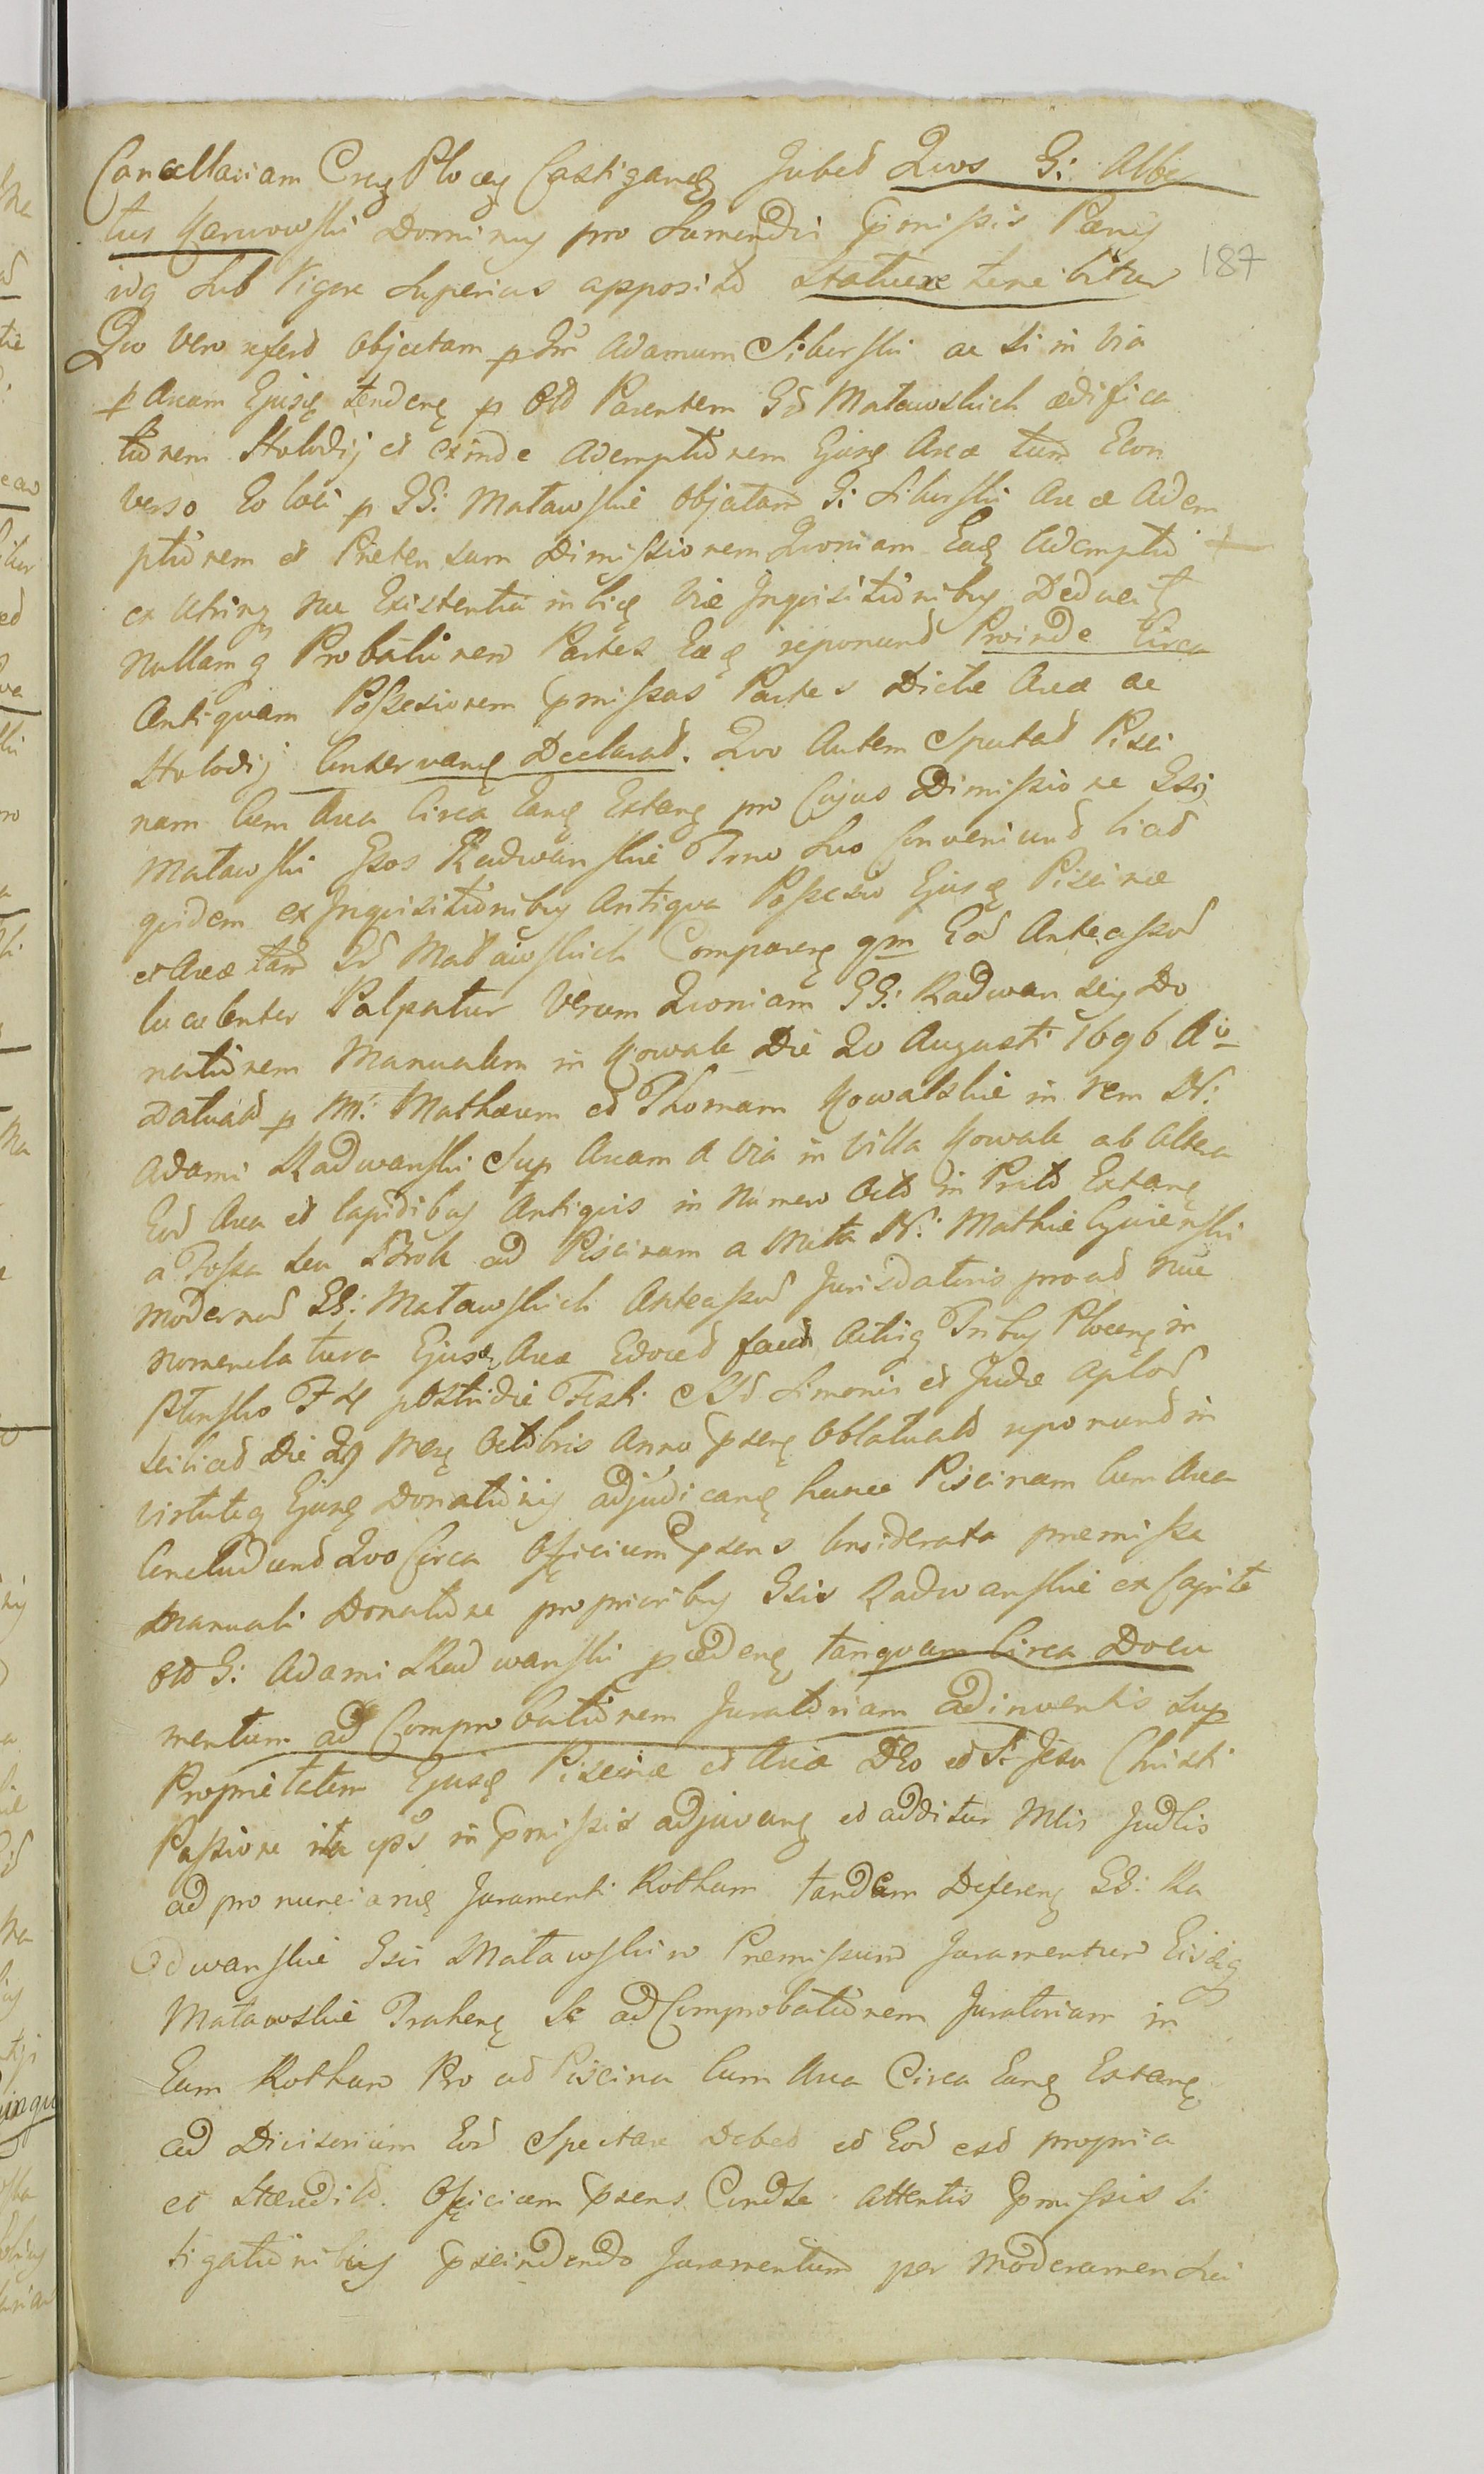 Cancellariam Crem Plocen Castigand Jubet Quos G: Alber
tus Karwowski Dominus pro Sumendis pmissis Pænis
idq sub Vigore Superius apposito Statuere tenebitur
187
Quo vero referd objectam p Gm Adamum Siberski ac si in via
p Aream Ejusd tendend p Old Parentem Gd Matawskich ædifica
tionem Stolodij et exinde ademptionem Ejusd Areæ tum Econ
verso Eo loci p GG: Matawskie objectam G: Siberski Areæ Adem
ptionem et Prætensam Dimissionem Quoniam Ead Ademptio
ex utring nec Existentia inibid Viæ Inquisitionibus Deducit
Nullamq Probationem Partes Eæd reponund Proinde Circa
Antiquam Possesionem pmissas Partes Dictæ Areæ ac
Stolodij Conservand Declarat. Quo Autem Spectat Pisci
nam Cum Area Circa Eand Extand pro Cujus Dimissione Gsi
Matawski Gsos Radwanskie Tmo Suo Conveniund licad
quidem ex Inquisitionibus Antiqua Possesio Ejusd Piscinæ
et Areæ tam Gd Matawskich Comparend qm Eod Antecessod
luculenter Palpatur Verum Quoniam GG: Radwanscy Do
nationem Manualem in Kowale Die 20 Augusti 1696 Ao
Datuatd p M: Mathæum et Thomam Kowalskie in rem N:
Adami Radwanski Sup Aream a via in Villa Kowale ab altera
Eod Area et lapidibus Antiquis in Numero Octo in Prato Extand
a Fossa seu Strok ad Piscinam a Meta N: Mathiæ Cywinski
Modernod GG: Matawskich Antecessod Jurisdatoris prout nunc
nomenclatura Ejusd Areæ Edoced facit Actisq Tribus Plocen in
Plonsko F 4 postridie Festi SSd Simonis et Judæ Aplod
scilicet Die 29 Mens Octobris Anno psend Oblatuatd reponund in
virtuteq Ejusd Donationis adjudicand hance Piscinam Cum Area
Concludund Quo Circa Officium psens Considerata præmissa
Manuali Donatione proprioribus Gsis Radwanskie ex Capite
old G: Adami Radwanski pcedend tanquam Circa Docu
mentum ad Comprobationem Juratoriam adinventis Sup
Proprietatem Ejusd Piscinæ et Areæ Deo et S: Jesu Christi
Passione ita ipsos in pmissis adjuvand et additur Mlis Judlis
ad pronunciand Juramenti Rotham tandem Deferend GG: Ra
dwanskie Gsis Matawskim Præmissum Juramentum Eisdeq
Matawskie Trahend Se ad Comprobationem Juratoriam in
Eam Rotham Pro ut Piscina Cum Area Circa Eand Extand
ad Divisorium Eod Spectare Debet et Eod est propria
et hæredit. Officium psens Cundte attentis pmissis li
tigationibus pscindendo Juramentum per Moderamen sui